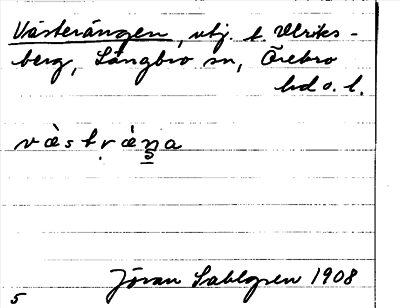 Västerängen, utj. t. Ulriks-
berg, Långbro sn, Örebro
hd o. l.
västräŋa
Jöran Sahlgren 1908
5